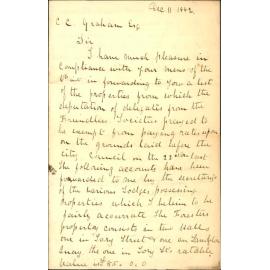 Dec 11 1882
C. C. Graham Esq
Sir
I have much pleasure in
Compliance with your memo of the
6th Inst in forwarding to you a list
of the properties from which the
deputation of delegates from the
Friendlies Societies prayed to
be exempt from paying rates upon
on the grounds laid before the
City Council on the 22nd last
The following accounts have been
forwarded to me by the secretarys
of the various Lodges possessing
Properties which I believe to be
fairly accurate The Foresters
property consists in two Halls
one in Tory Street & one on
Quay the one in Tory St ratable
Value